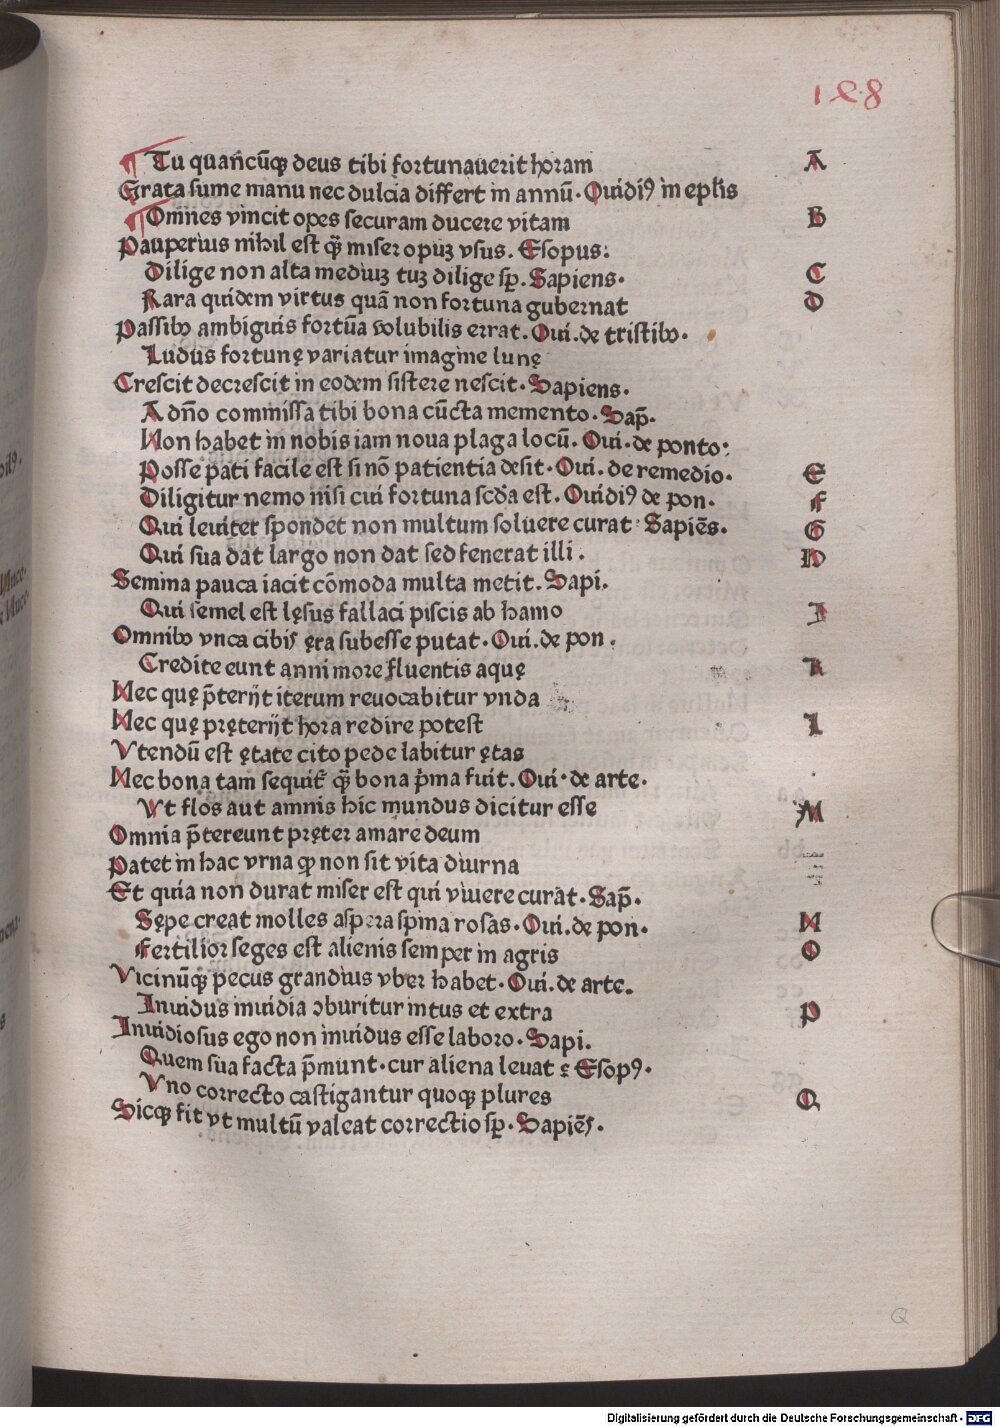 128
¶ Tu quan̄cūqꝫ deus tibi fortunauerit horam A
Grata sume manu nec dulcia differt in annū. Ouidiꝰ in epl̄is
¶ Omnes vincit opes securam ducere vitam B
Pauperius nihil est qꝫ̄ miser opuꝫ vsus. Esopus:
Dilige non alta mediuꝫ tuꝫ dilige sꝑ. Sapiens. C
Rara quidem virtus quā non fortuna gubernat D
Passibꝰ ambiguis fortūa volubilis errat. Oui. de tristibꝰ.
Ludus fortunę variatur imagine lunę
Crescit decrescit in eodem sistere nescit. Sapiens.
A dn̄o commissa tibi bona cūcta memento. Sap̄.
Non habet in nobis iam noua plaga locū. Oui. de ponto:
Posse pati facile est si nō patientia desit. Oui. de remedio. E
Diligitur nemo nisi cui fortuna scd̄a est. Ouidiꝰ de pon. F
Qui leuiter spondet non multum soluere curat: Sapiēs. G
Qui sua dat largo non dat sed fenerat illi. H
Semina pauca iacit cōmoda multa metit. Sapi.
Qui semel est lęsus fallaci piscis ab hamo I
Omnibꝰ vnca cibis ęra subesse putat. Oui. de pon.
Credite eunt anni more fluentis aquę K
Nec quę p̄terijt iterum reuocabitur vnda
Nec quę pręterijt hora redire potest L
Vtendū est ętate cito pede labitur ętas
Nec bona tam sequit᷑ qꝫ̄ bona p̄ma fuit. Oui. de arte.
Vt flos aut amnis hic mundus dicitur esse M
Omnia p̄tereunt pręter amare deum
Patet in hac vrna ꝙ non sit vita diurna
Et quia non durat miser est qui viuere curat. Sap̄.
Sępe creat molles aspera spina rosas. Oui. de pon. N
Fertilior seges est alienis semper in agris O
Vicinūqꝫ pecus grandius vber habet. Oui. de arte.
Inuidus inuidia ↄburitur intus et extra P
Inuidiosus ego non inuidus esse laboro. Sapi.
Quem sua facta p̄munt. cur aliena leuat: Esopꝰ.
Vno correcto castigantur quoqꝫ plures Q
Sicqꝫ fit vt multū valeat correctio sꝑ. Sapiēs.
Q
Digitalisierung gefördert durch die Deutsche Forschungsgemeinschaft - DFG